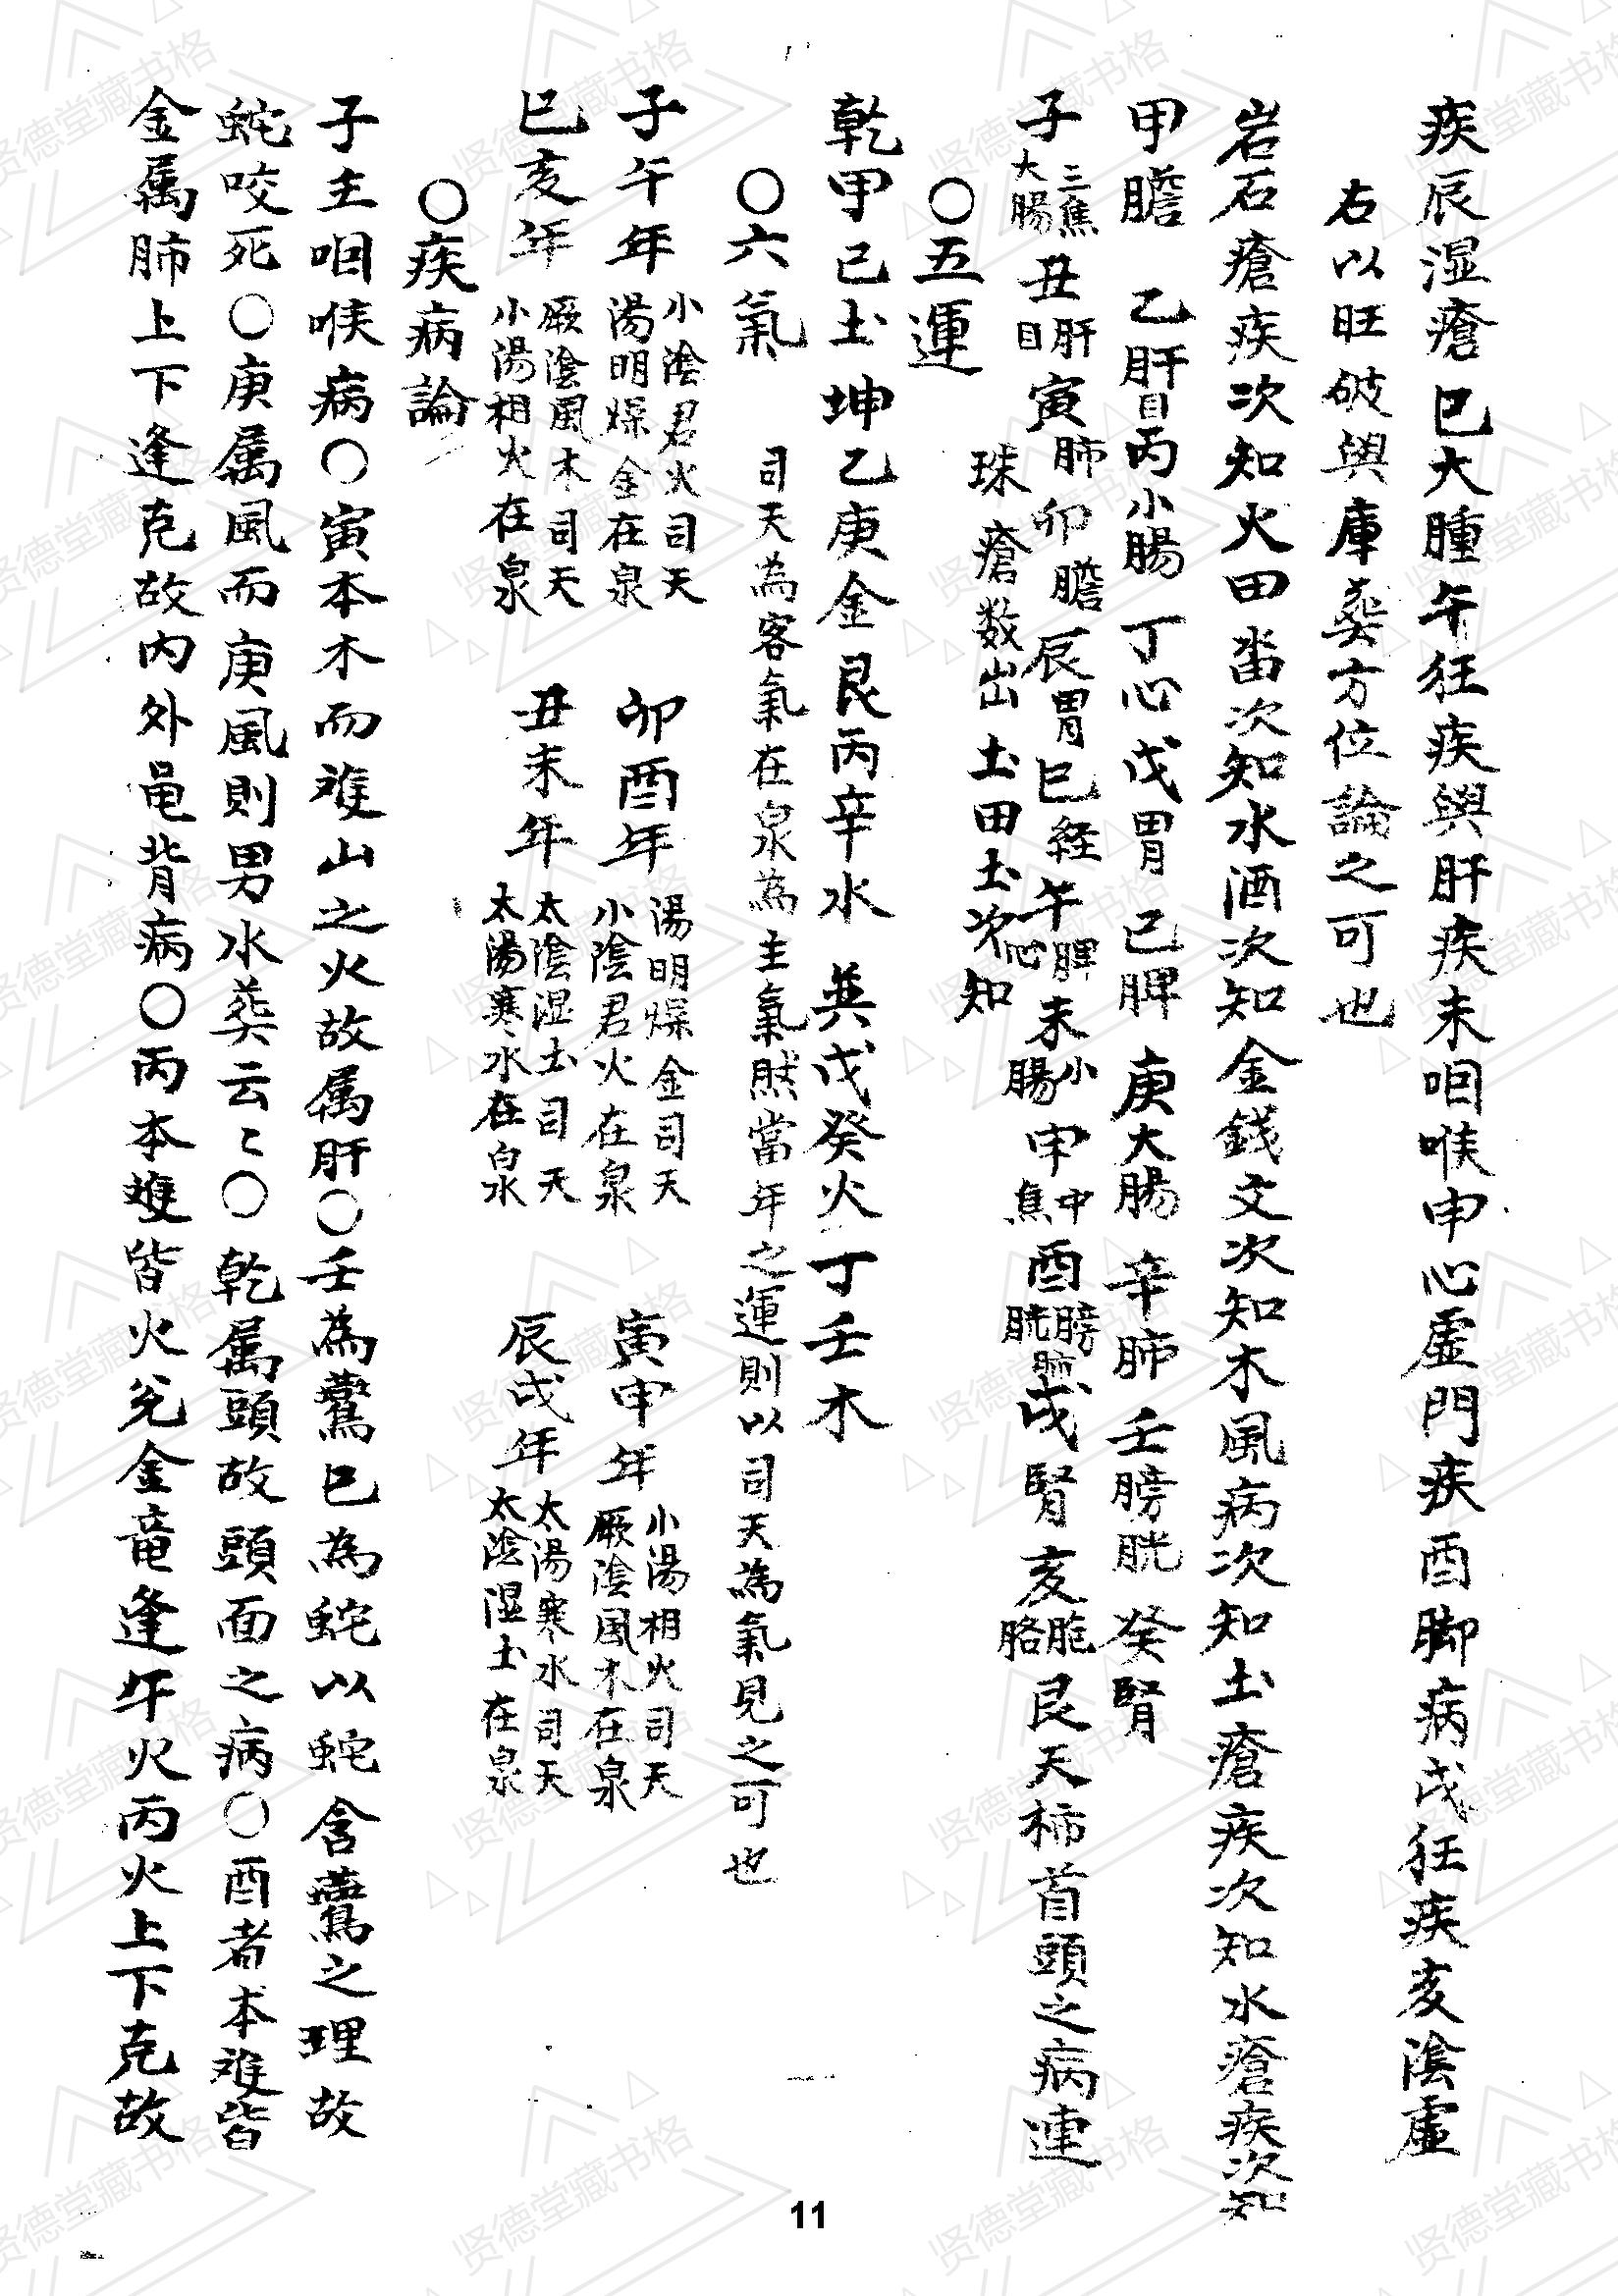 疾辰湿瘡巳大腫午狂疾與肝疾未咽喉申心虛門疾酉脚病戌狂疾亥陰虛
右以旺破與庫葬方位論之可也
岩石瘡疾次知火田畓次知水酒次知金錢文次知木風病次知土瘡疾次知水瘡疾次知
甲膽 乙肝目丙小腸 丁心 戊胃 己脾 庚大腸 辛肺 壬膀胱 癸腎
子三焦大腸丑肝目寅肺卯膽辰胃巳経午脾心未小腸申中焦酉膀胱肺戌腎亥胞胳艮天柿首頭之病連
珠瘡数出 土田土次知
〇五運
乾甲己土 坤乙庚金 艮丙辛水 巽戊癸火丁壬木
〇六氣 司天為客氣在泉為主氣然當年之運則以司天為氣見之可也
子午年小陰君火司天湯明燥金在泉 卯酉年湯明燥金司天小陰君火在泉 寅申年小湯相火司天厥陰風木在泉
巳亥年厥陰風木司天小湯相火在泉 丑未年太陰湿土司天太陽寒水在泉 辰戌年太湯寒水司天太陰湿土在泉
〇疾病論
子主咽喉病〇寅本木而雖山之火故属肝〇壬為鶯巳為蛇以蛇含鶯之理故
蛇咬死〇庚属風而庚風則男水葬云々〇乾属頭故頭面之病〇酉者本雖皆
金属肺上下逢克故内外黾背病〇丙本雖皆火兊金竜逢午火丙火上下克故
11
贤德堂藏书格